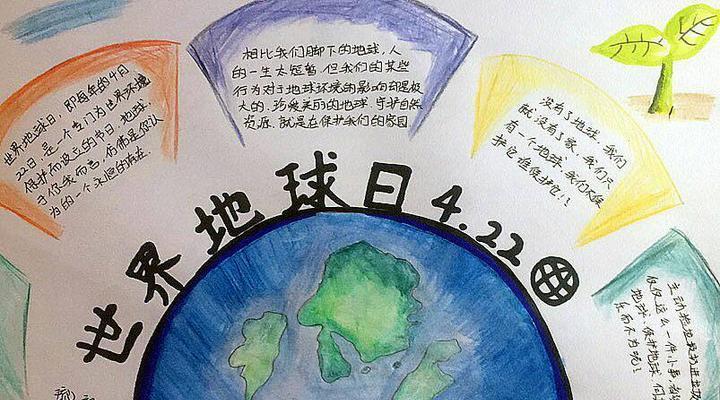 世界地球日4.22
世界地球日,即每年的4月
22日,是一个专门为世界环境
保护而设立的节日,地球
日你我而言,仿佛是公认
为的一个永恒的
相比我们脚下的地球,人
的一生太短暂.但我们的某些
行为对于地球环境的影响却是极
大的,珍爱美丽的地球,守护自然
资源,就是在保护我们的家园
没有了地球,我们
就没有了家.我们只
有一个地球,我们不保
护它谁保护它!!
主动捡地
仅仅这么一件小事
地球,保护地球,何
乐而不为呢!